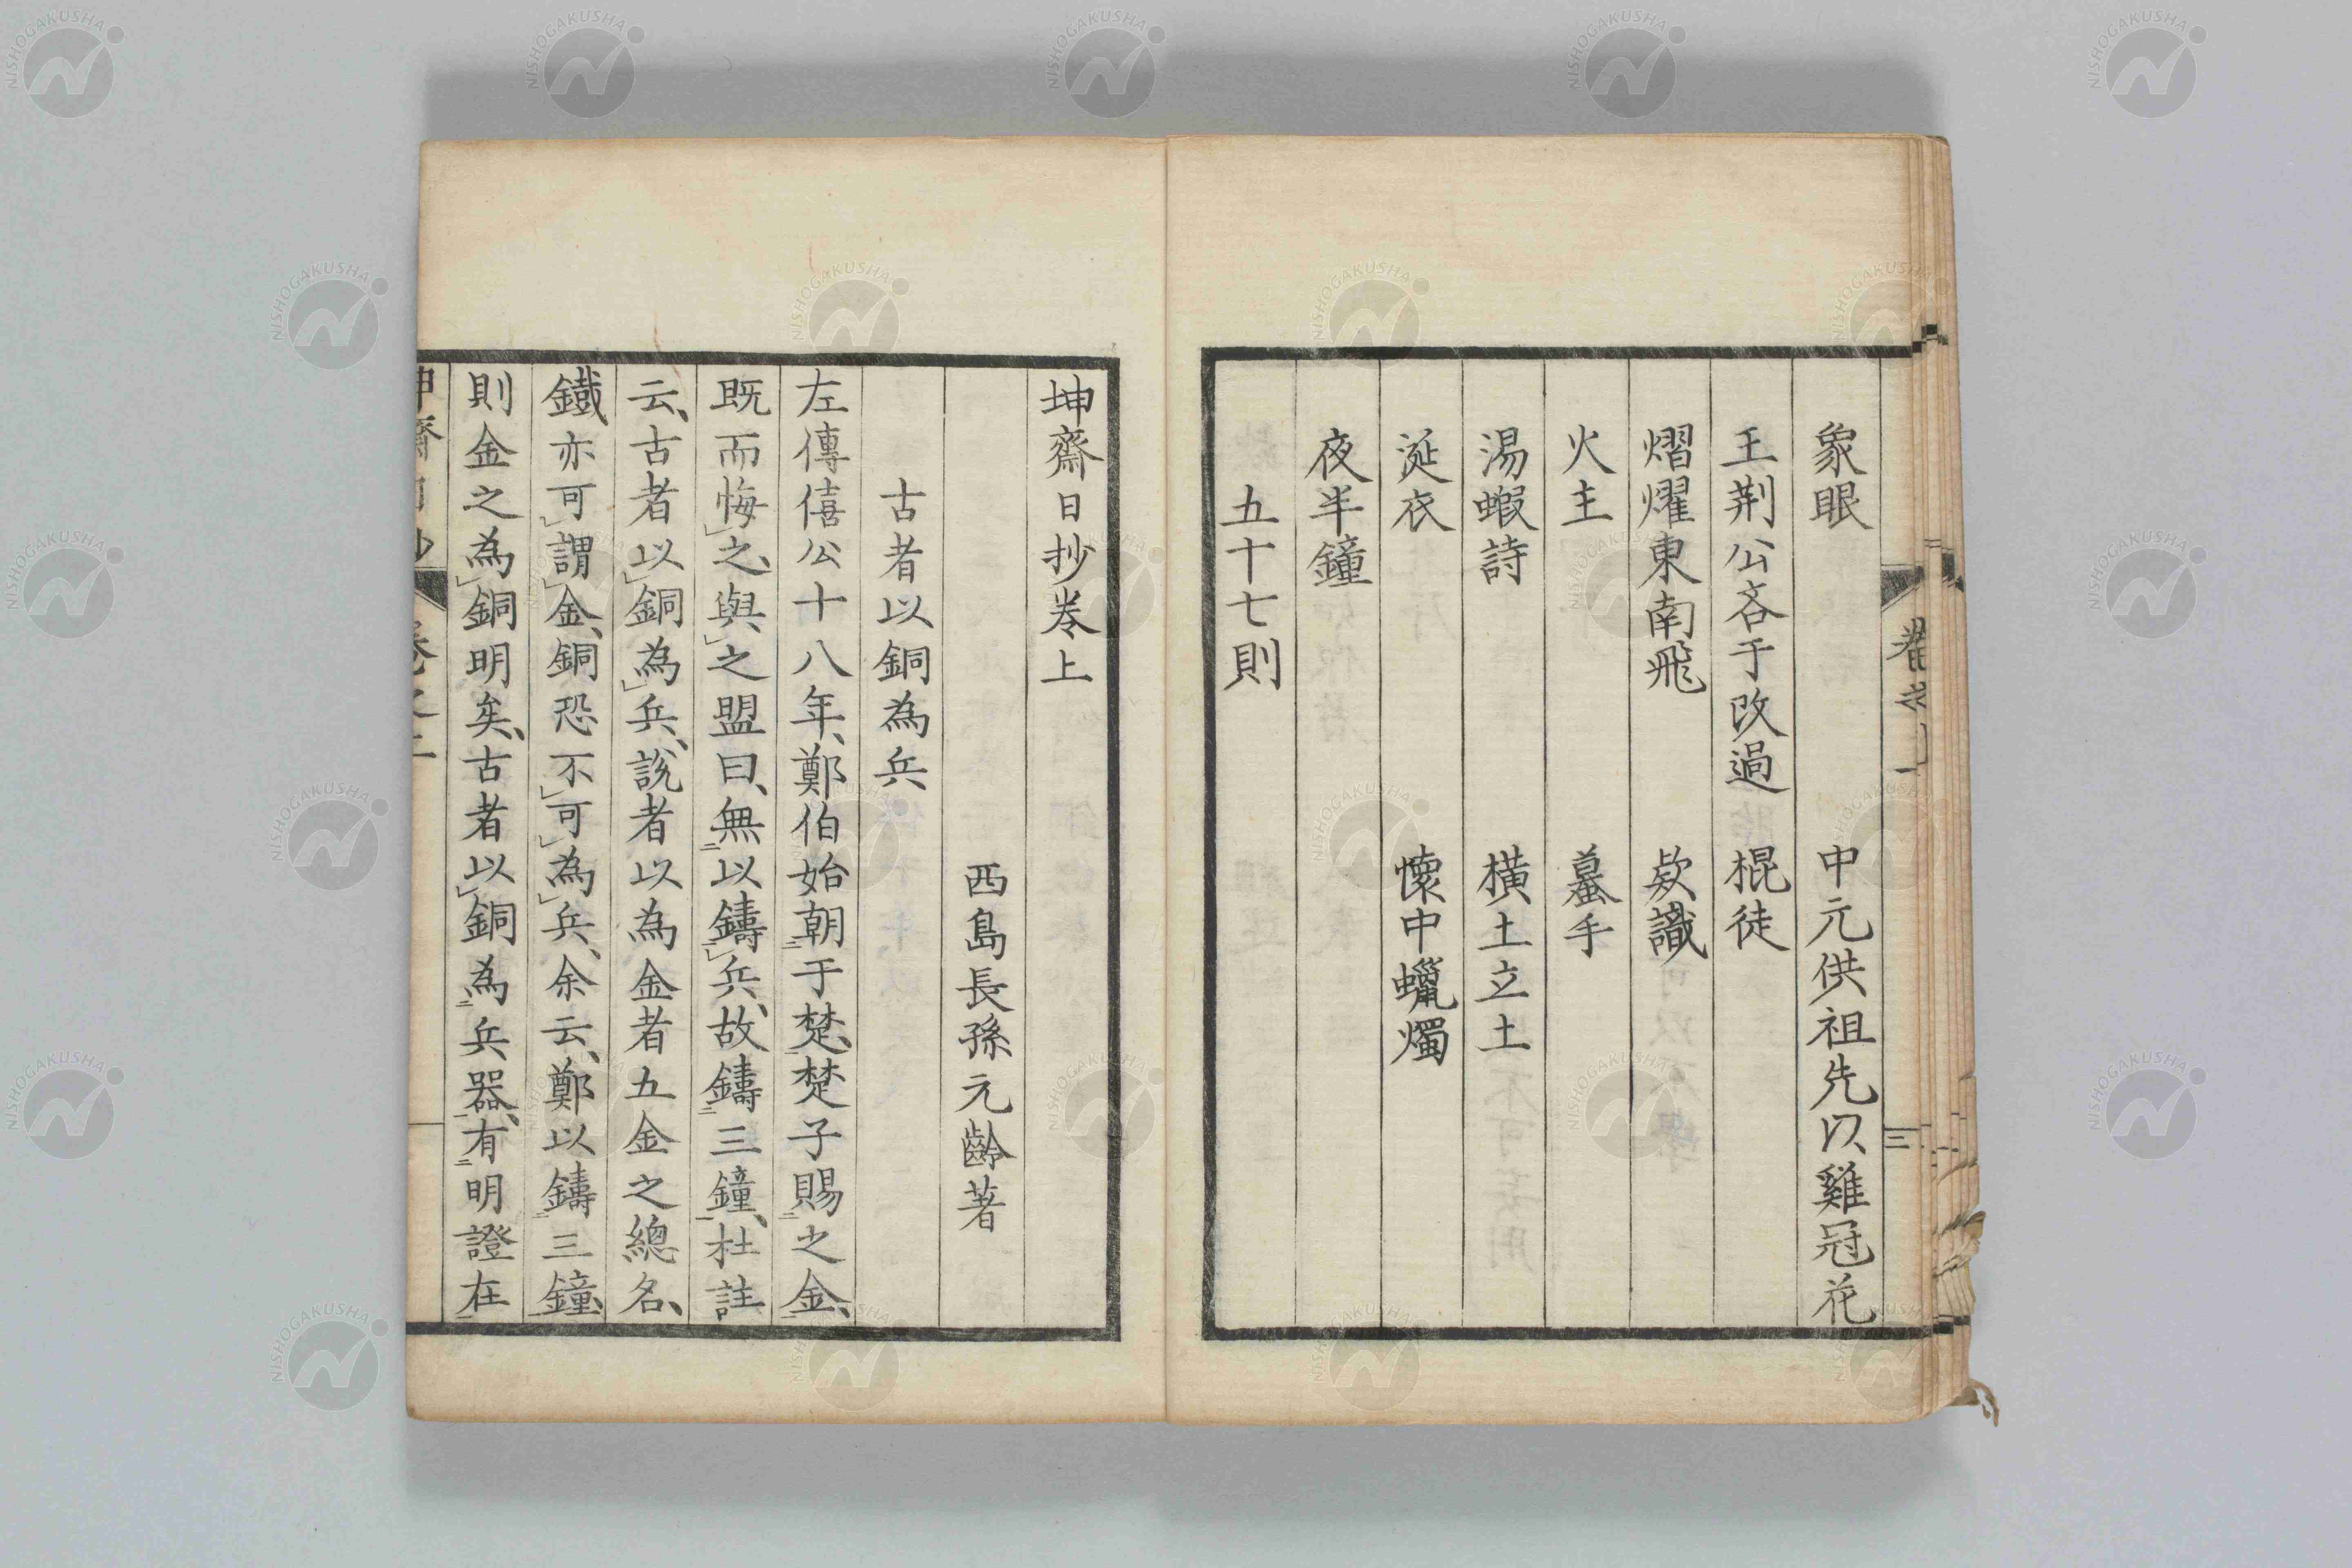 象眼 中元供祖先以雞冠花
王荆公吝于改過 棍徒
熠燿東南飛 欵識
火主 蟇手
湯蝦詩 橫土立土
涎衣 懷中蠟燭
夜半鐘
五十七則
坤齋日抄卷上
西島長孫元齡著
古者以銅為兵
左傳僖公十八年、鄭伯始朝于楚、楚子賜之金、
既而悔之、與之盟曰、無以鑄兵、故鑄三鐘、杜註
云、古者以銅為兵、說者以為金者五金之總名、
鐵亦可謂金、銅恐不可為兵、余云、鄭以鑄三鐘、
則金之為銅明矣、古者以銅為兵器、有明證在
NISHOGAKUSHA